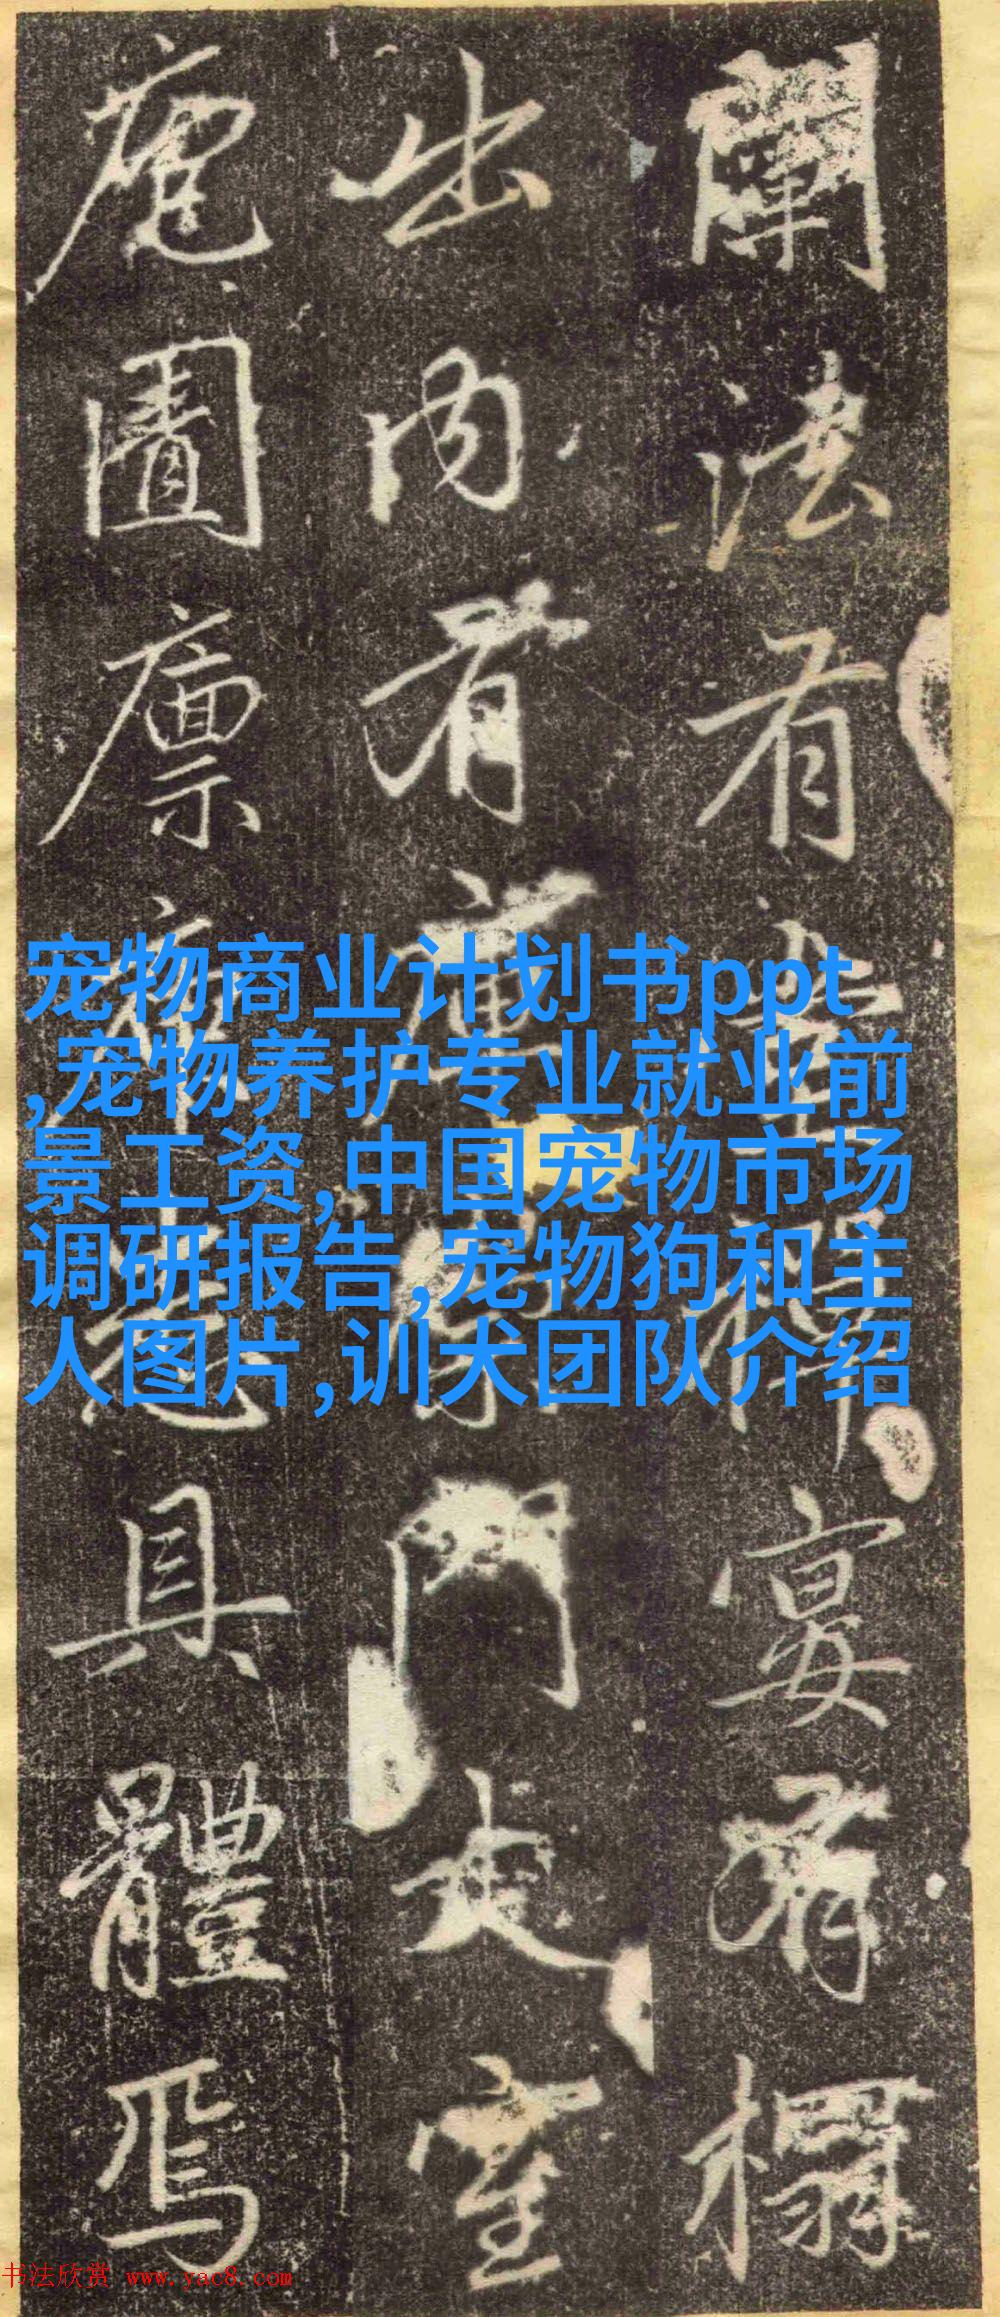 闡法有堂禪宴有榻
出內有門走室
庖廩具體焉
宠物商业计划书ppt
,宠物养护专业就业前
景工资,中国宠物市场
调研报告,宠物狗和主
人图片,训犬团队介绍
书法欣赏 www.yac8.com